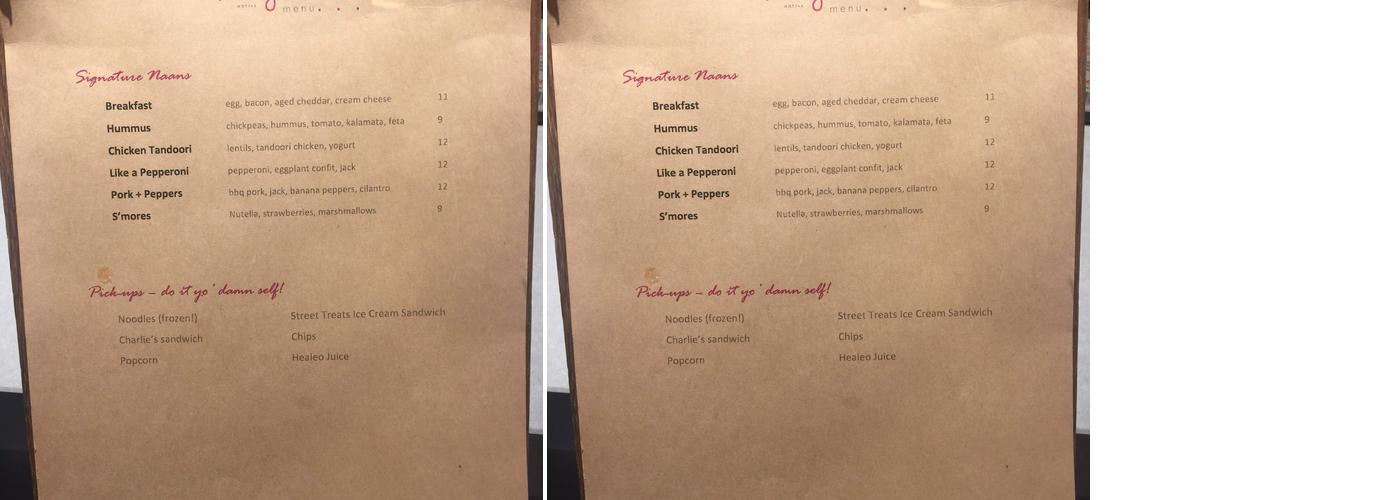 menu. . .
Signature Naans
Breakfast egg, bacon, aged cheddar, cream cheese 11
Hummus chickpeas, hummus, tomato, kalamata, feta 9
Chicken Tandoori lentils, tandoori chicken, yogurt 12
Like a Pepperoni pepperoni, eggplant confit, jack 12
Pork + Peppers bbq pork, jack, banana peppers, cilantro 12
S'mores Nutella, strawberries, marshmallows 9
Pick-ups – do it yo' damn self!
Noodles (frozen!) Street Treats Ice Cream Sandwich
Charlie's sandwich Chips
Popcorn Healeo Juice
menu. . .
Signature Naans
Breakfast egg, bacon, aged cheddar, cream cheese 11
Hummus chickpeas, hummus, tomato, kalamata, feta 9
Chicken Tandoori lentils, tandoori chicken, yogurt 12
Like a Pepperoni pepperoni, eggplant confit, jack 12
Pork + Peppers bbq pork, jack, banana peppers, cilantro 12
S'mores Nutella, strawberries, marshmallows 9
Pick-ups – do it yo' damn self!
Noodles (frozen!) Street Treats Ice Cream Sandwich
Charlie's sandwich Chips
Popcorn Healeo Juice